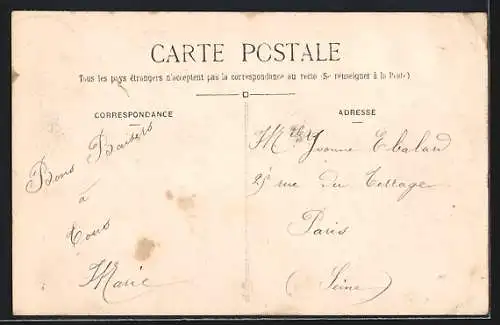 CARTE POSTALE
Tous les pays étrangers n'acceptent pas la correspondance au recto (Se renseigner à la Poste)
CORRESPONDANCE
Bons Baisers
à
Tous
Marie
ADRESSE
Yvonne Ebalard
rue du Terrage
Paris
(Seine)